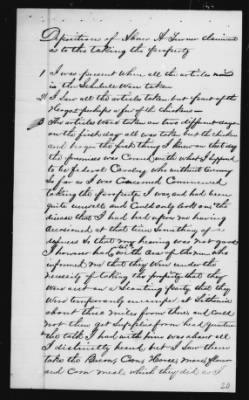 Depositions of Abner A. Turner claimant
as to the taking the property
1 I was present when all the articles named
in the Schedule were taken
2 I saw all the articles taken but four of the
Hogs & perhaps a few of the chickens
3 The articles were taken on two different days
on the first day all was taken but the chickens
and hogs the first thing I knew on that day
the premises was Covered with what I supposed
to be federal Cavalry who without
so far as I was Concerned Commenced
taking the property I was and had been
quite unwell and Could only look on the
disease that I had had upon me having
occasioned at that time something of a
deafness so that my hearing was not good
I however had the of them who
informed me that they were under the
necessity of taking the property that they
were out on a Scouting party that they
were temporarily encamped at Lithonia
about three miles from there and could
not then get Supplies from head quarters
the talk I had with him was about all
I distinctly heard but I saw them
take the Bacon, Corn, Horses, mare, flour
and Corn meal which they did as I
20